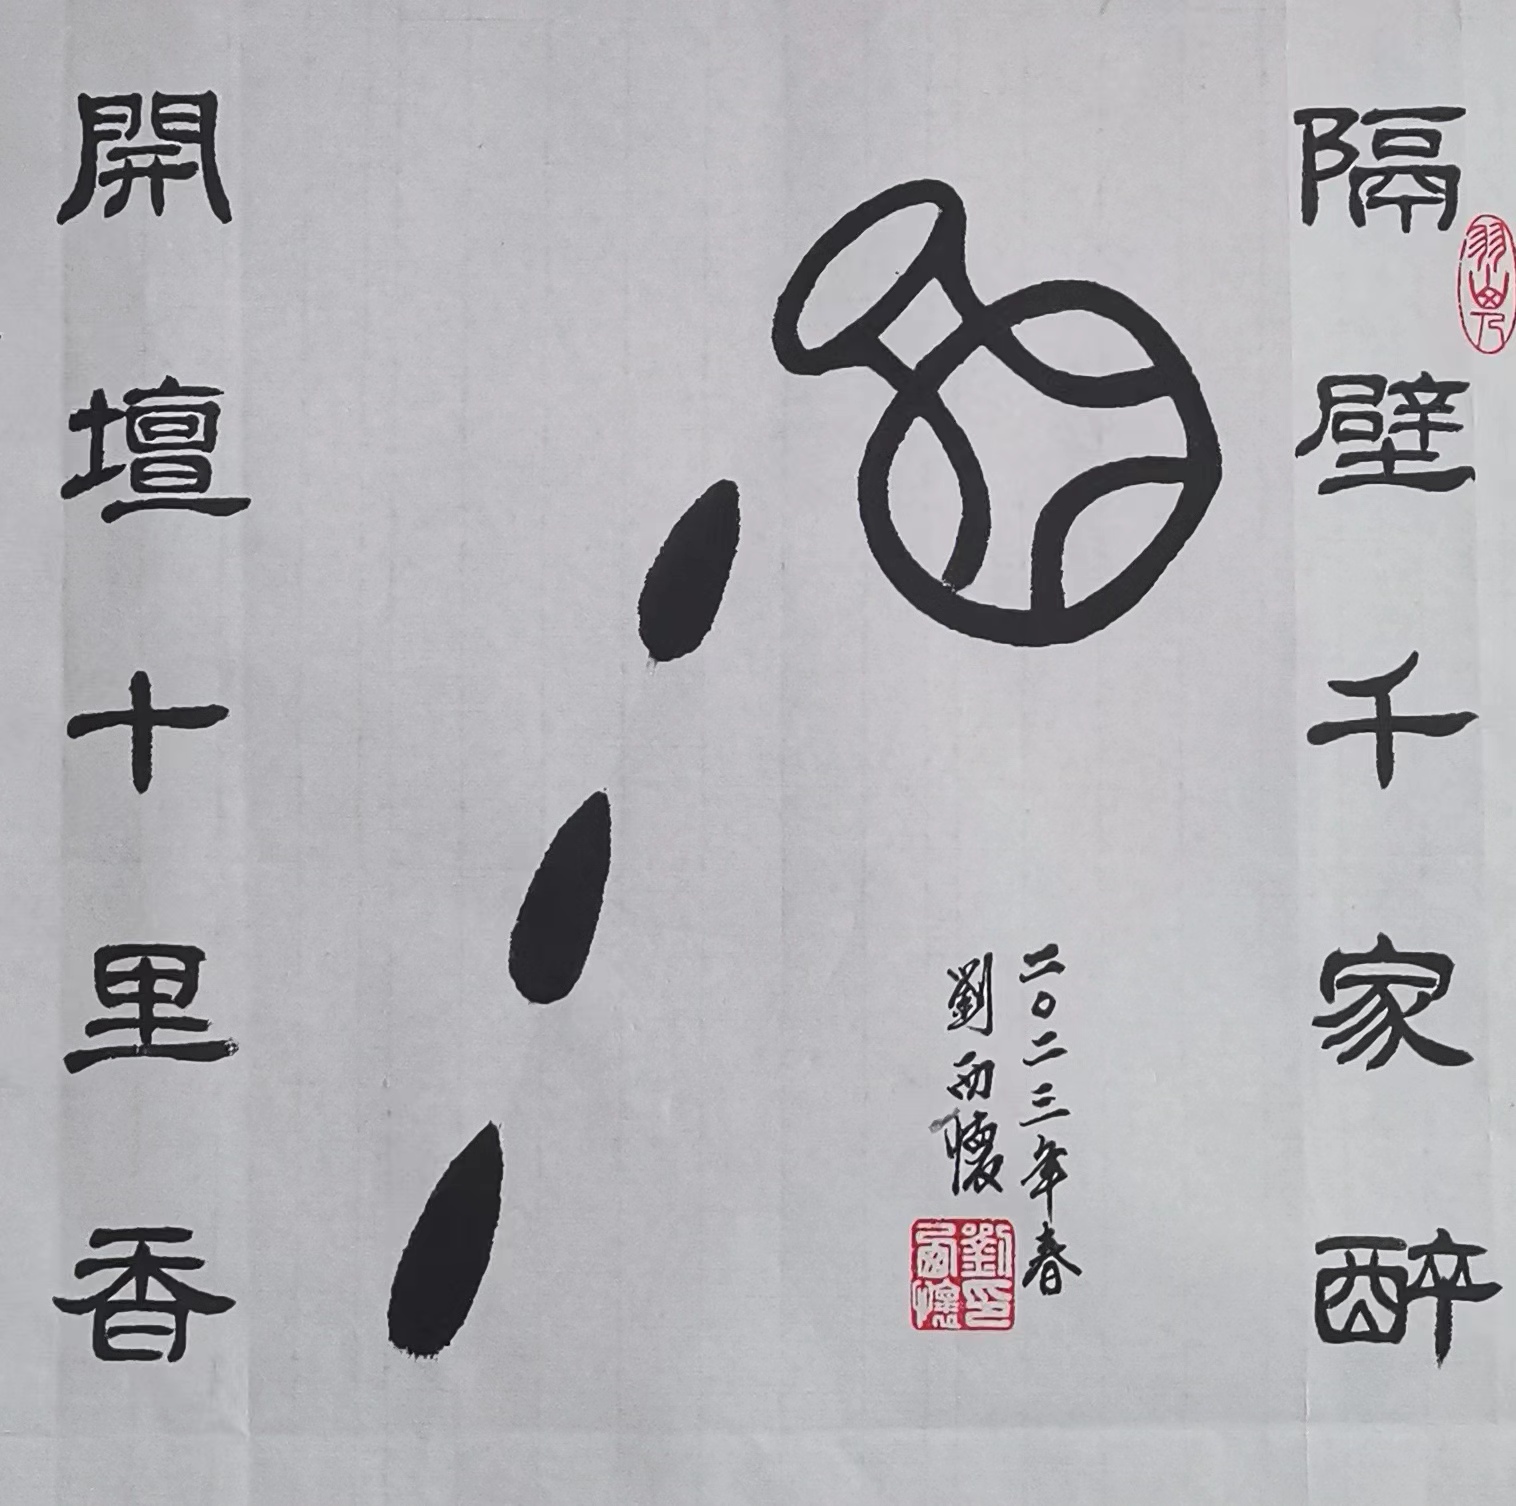 隔壁千家醉
酒
二〇二三年春
劉西懷
劉印西懷
開壇十里香